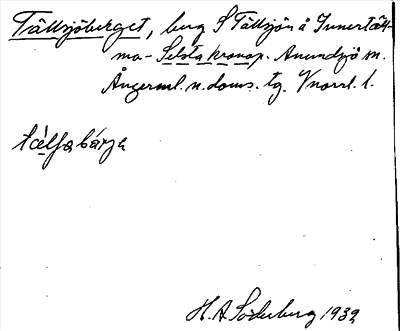 Tällsjöberget, berg S Tällsjön å Innertäll-
mo - Selsta kronop. Anundsjö sn.
Ångerml. n. doms. tg. Vnorrl. l.
H. A. Söderberg 1932